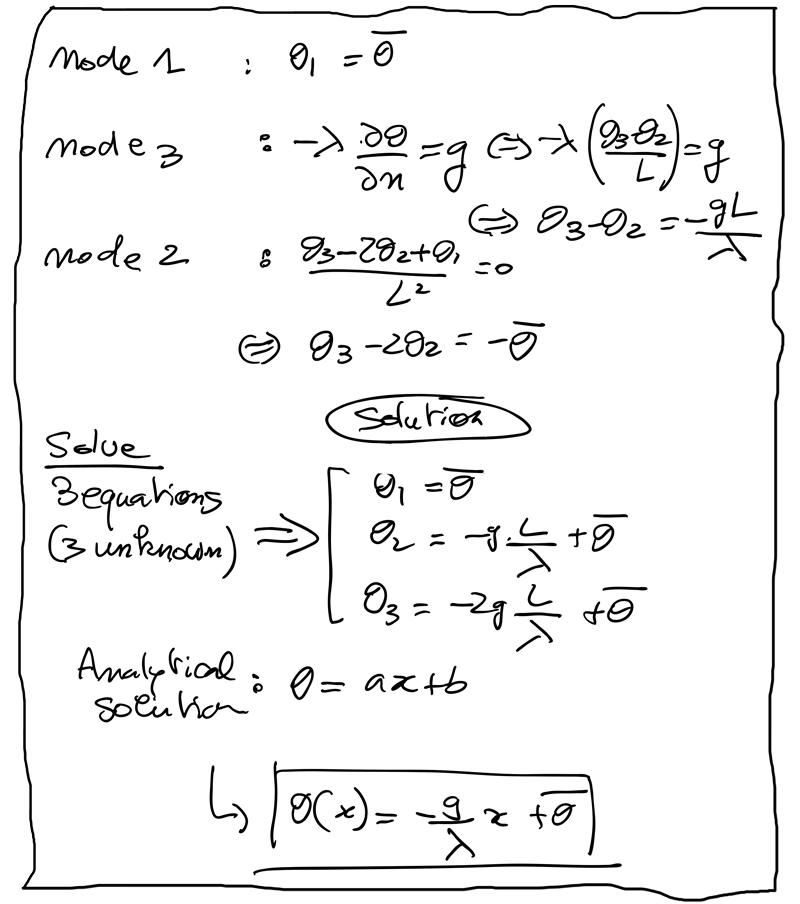 node 1 : θ₁ = θ̄
node 3 : -λ ∂θ/∂n = g ⇔ -λ ((θ₃-θ₂)/L) = g
⇔ θ₃-θ₂ = -gL/λ
node 2 : (θ₃-2θ₂+θ₁)/L² = 0
⇔ θ₃-2θ₂ = -θ̄
Solution
Solve
3 equations
(3 unknown) ⇒
θ₁ = θ̄
θ₂ = -g.L/λ + θ̄
θ₃ = -2g L/λ + θ̄
Analytical
solution : θ = ax+b
↳ θ(x) = -g/λ x + θ̄